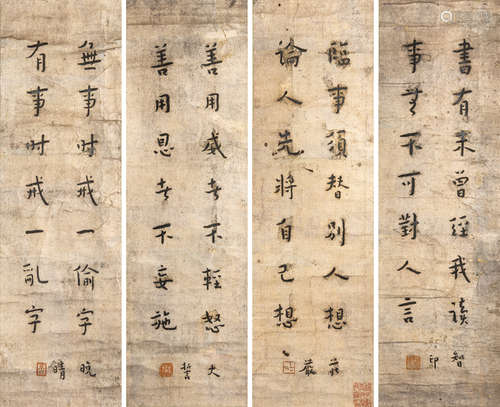 書有未曾經我讀
事無不可對人言
智印
臨事須替別人想
論人先將自己想
莊嚴
善用威者不輕怒
善用恩者不妄施
大誓
無事时戒一偷字
有事时戒一亂字
晚晴